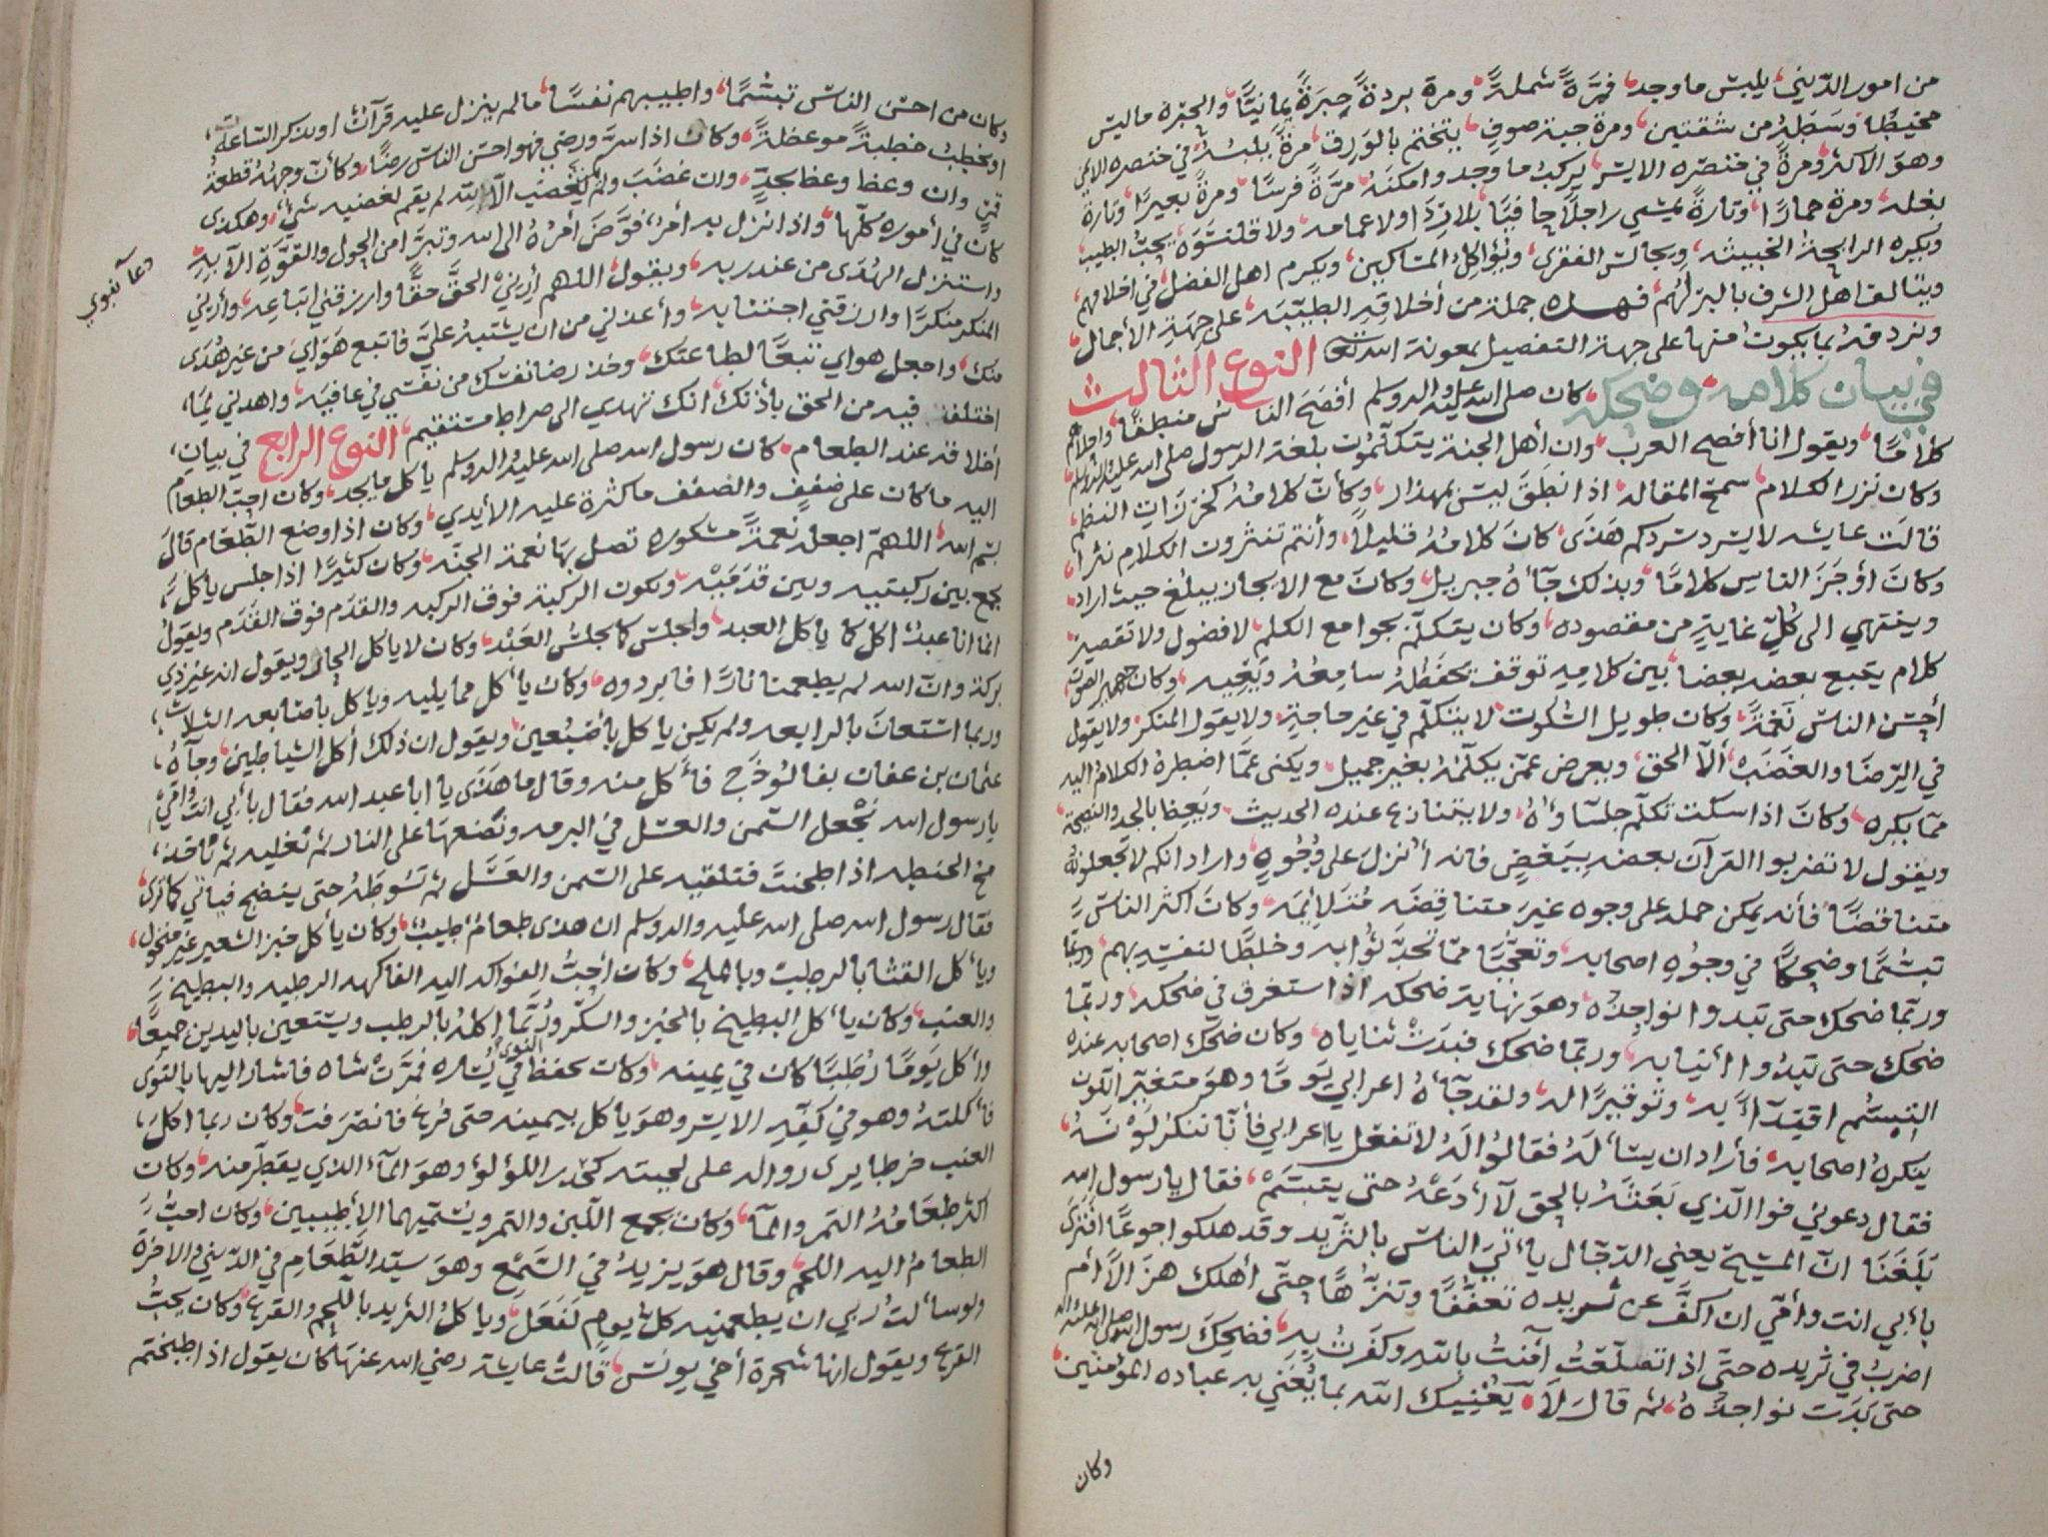 من امور الدّيني، يلبس ما وجد، فمرّةً شملةً، ومرة بردةً حِبَرَةً يمانيًّا، والحبره ماليس
مخيطًا وسَطِهُ من شقتين، ومرة جبة صوفٍ، يتختم بالوَرِق، مرةً يلبسهُ في خنصره الايمن
وهوَ الاكثر ومرةً في خنصره الايسر، يركبُ ما وجد وامكنهُ، مرّةً فرسًا، ومرةً بعيرًا، وتارة
بغله، ومرة حمارًا، وتارةً يمشي راجلًا حافيًا، بلا ردَا، ولا عمامه، ولا قلنسَوَه، يحبُّ الطيب،
ويكره الرايحةَ الخبيثه، ويجالس الفقرى، ويؤاكلُ المسَاكين، ويكرم اهل الفضل، في اخلاقهم،
ويتالف اهل الشرف، بالبر لهُم، فهذه جملة من أخلاقِهِ الطيّبَه، على جهَةِ الأجمال،
ونرد فهُ بما يكون منها على جهة التفصيل بمعونة الله تعَا النوع الثالث
في بيان كلامه وضحكه، كان صلى الله عليه واله وسلم أفصَحَ الناس منطقًا، واحلاهم
كلامًا، ويقول انا أفصح العرب، وان أهل الجنة يتكلمُون بلغة الرّسول صلى الله عليه واله وسلم،
وكان نزر الكلام، سمح المقاله، اذا نطَقَ ليسَ بمهذار، وكأن كلامُهُ كخرزات النظم،
قالَت عايشه لا يسرد سردكم هذَى، كانَ كلامُهُ قليلًا، وأنتم تنثرون الكلام نثرًا،
وكانَ أوجَزَ الناس كلامًا، وبذلك جآءهُ جبريل، وكانَ مع الايجاز يبلغ حيث اراد،
وينتهي الى كُلِّ غايةٍ من مقصوده، وكان يتكلّم بجوامع الكلم، لا فضول ولا تقصير،
كلام يتبع بعضه بعضا، بين كلامِهِ توقف يحفظُهُ سامِعُهُ ويعيه، وكان جهير الصّوت،
أحسن الناس نَغمَةً، وكان طويل السُّكوت، لا يتكلّم في غير حاجةٍ، ولا يقول المنكر، ولا يقول
في الرّضَا والغضَب، إلّا الحق، ويعرض عمّن يكلّمهُ بغير جميل، ويكنى عمّا اضطرهُ الكلامُ اليه
ممّا يكره، وكانَ اذا سكت تكلّم جلسَاؤهُ، ولا يتنازع عنده الحديث، ويَعِظ بالجد والنصيحة،
ويقول لا تضربوا القرآن بعضه بِبَعْضٍ فانه أنزلَ على وُجُوهٍ، واراد انكم لا تجعلونهُ
متناقضًا، فأنه يمكن حمله على وجوه غيرَ متناقِضَه، وكانَ أكثر الناسَ
تبسّمًا وضحِكًا في وجُوهِ اصحابه، وتعجُّبًا ممّا تحدّثوا به، وخلطًا لنفسِهِ بهم، وربمّا
وربمّا ضحك حتى تبدوا نواجِذُه، وهوَ نهاية ضحكه اذا استغرق في ضحكه، وربمّا
ضحك حتى تبدُوا أنيابه، وربمّا ضحك فبدَتْ ثناياه، وكان ضحك اصحابه عنده
التبسُّم اقتدآءً به، وتوقيرًا له، ولقد جآءهُ اعرابي يَومًا وهوَ متغيّر اللون
ينكرهُ اصحابه، فأراد ان يسألهُ فقالوُا لهُ لا تفعل يا اعرابي فأنّا ننكر لَوْنَهُ،
فقال دعوني فوا الّذي بَعَثَهُ بالحق لا أدَعْهُ حتى يتبسَّمْ، فقال يا رسول الله
بَلَغَنا انّ المسِيحَ يعني الدجّال يأتيَ الناسَ بالثريد وقد هلكوا جوعًا افترى
بأبي انت وأمّي ان اكفَّ عن ثريده تعفّفًا وتنزُّهًا حتّى أهلك هزالًا أم
اضربُ في ثريده حتّى اذا تضلّعتُ آمنتُ بالله وكفَرتُ بِهِ، فضحِكَ رسول الله صلى الله عليه واله
حتى بَدَت نواجذُهُ، ثم قالَ لَا، يُغْنِيك الله بما يُغْني به عباده المؤمنين،
وكان
وكان من احسن الناس تبسّمًا، واطيبهم نفسًا، ما لم ينزل عليه قرآن، او يذكر السّاعة،
او يخطبُ خطبةً موعظةً، وكان اذا سرَّ ورضي فهو احسَن الناس رضًا، وكأنّ وجههُ قطعةُ
قمرٍ، وان وعظ وعظ بجدٍّ، وان غضَبَ ولم يكن يغضب الّا لِلّه لم يقم لغضبه شيٌ، وهكذى
كان في أموره كلّها، واذا نزل به أمرٌ، فوَّضَ أمرَهُ الى الله وتبرّا من الحول والقوَّةِ الّا بِهِ،
واستنزل الهُدَى من عند ربه، ويقول، اللهم أرِنيْ الحقَّ حقًّا وارزقني اتباعه، وأرِني
المنكر منكرًا وارزقني اجتنابه، وأعذني من ان يشتبهُ عليَّ فاتبع هوَايَ من غير هُدَى
منك، واجعل هواي تبعًا لطاعتك، وخذ رضا نفسك من نفسي في عافيه، واهدني لِمَا،
اختلف فيه من الحق بأذنك، انك تهدي الى صراط مستقيم، النوع الرابع في بيان،
أخلاقه عند الطعام، كان رسول الله صلى الله عليه واله وسلم يأكل ما يجد، وكان احبّ الطعام
اليه ما كان على ضففٍ والضفف ما كثرة عليه الأيدي، وكان اذا وضع الطّعام قالَ
بسم الله، اللهمّ اجعلها نعمةً مشكوره تصل بها نعمة الجنّه، وكان كثيرًا اذا جلس يأكل،
يجمع بين ركبتيه وبين قدمَيْه، وتكون الركبة فوق الركبه والقدَم فوق القَدَم ويقولُ
انما انا عبدٌ، اكل كما يأكل العبد، واجلسَ كما يجلسُ العَبْد، وكان لا يأكل الحار، ويقول انه غير ذي
بركة وانّ الله لم يطعمنا نارًا فابردوه، وكان يأكل مما يليه ويأكل باصَابعه الثلاث،
وربما استعانَ بالرابعه ولم يكن ياكل بأصْبُعين، ويقول ان ذلك أكل الشياطين، وجآءَهُ،
عثمان بن عفان بفالوُذَج فأكل منه وقال ما هذَى يا ابا عبد الله فقال بأبي انت وامّي
يا رسول الله نجْعل السّمن والعسَل في البرمه ونضعهَا على النار ثم نغليه ثم نأخذ،
مخ الحنطه اذا طحنتَ فنلقيه على السّمن والعَسَل ثم نَسُوطَهُ حتى ينضج فيأتي كما ترى،
فقال رسول الله صلى الله عليه واله وسلم ان هذى طعامٌ طيبٌ، وكان يأكل خبز الشعير غير منخول،
ويأكل القثا بالرطب وبالملح، وكان أحبُّ الفواكه اليه الفاكهه الرطبه والبطيخ،
والعنب، وكان يأكل البطيخ بالخبز والسكّر وربَّما اكلهُ بالرطب ويستعين باليدين جميعًا،
وأكل يَومًا رُطَبًا كان في يمينه، وكان يحفظ النوى في يُسَاره فمرّتْ شاه فاشار اليها بالنوَى
فأكلتهُ وهو في كفِّهِ الايسر وهوَ يأكل بيمينه حتى فرغ فانصَرَفت، وكان ربما اكلَ،
العنب خرطا يرى رواله على لحيته كخدر اللؤلؤ، وهوَ المآء الذي يقطر منه، وكان
اكثر طعَامُهُ التمر والمآ، وكان يجمع اللّبن والتمر ويسَمّيهما الأطيبين، وكان احبُّ
الطعامُ اليه اللحم، وقال هوَ يزيدُ في السَّمْعِ وهوَ سيّد الطّعَامِ في الدّنيى والاخرة
ولو سألتُ ربي ان يطعمنيه كلّ يومٍ لَفَعَل، ويا كلُ الثريد باللّحم والقرع، وكان يحبُّ
القرع ويقول انها شجرة أخي يونسَ، قالتْ عايشة رضي الله عنها كان يقول اذا طبختم
دعآء نبوي